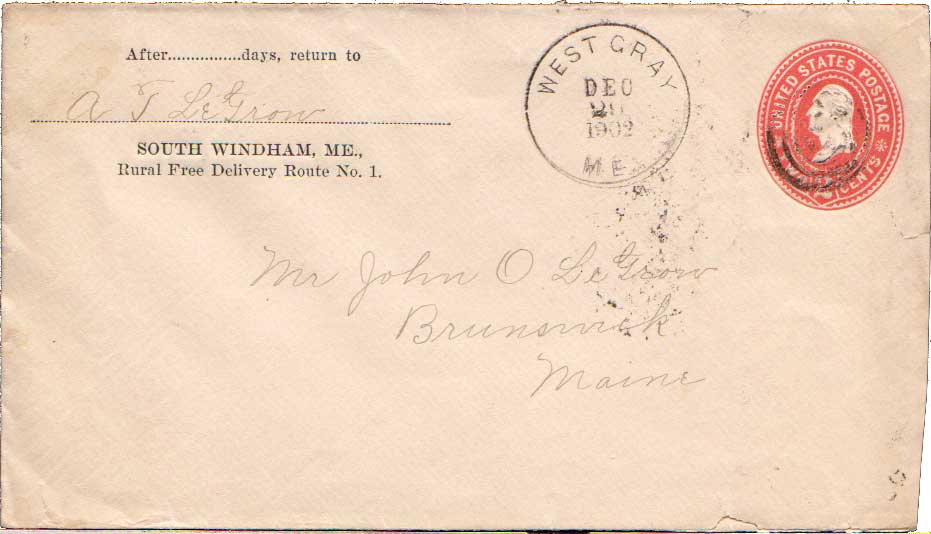 After................days, return to
A T LeGrow
SOUTH WINDHAM, ME.,
Rural Free Delivery Route No. 1.
WEST GRAY
DEC
1902
ME
UNITED STATES POSTAGE
2 CENTS
Mr John O LeGrow
Brunswick
Maine